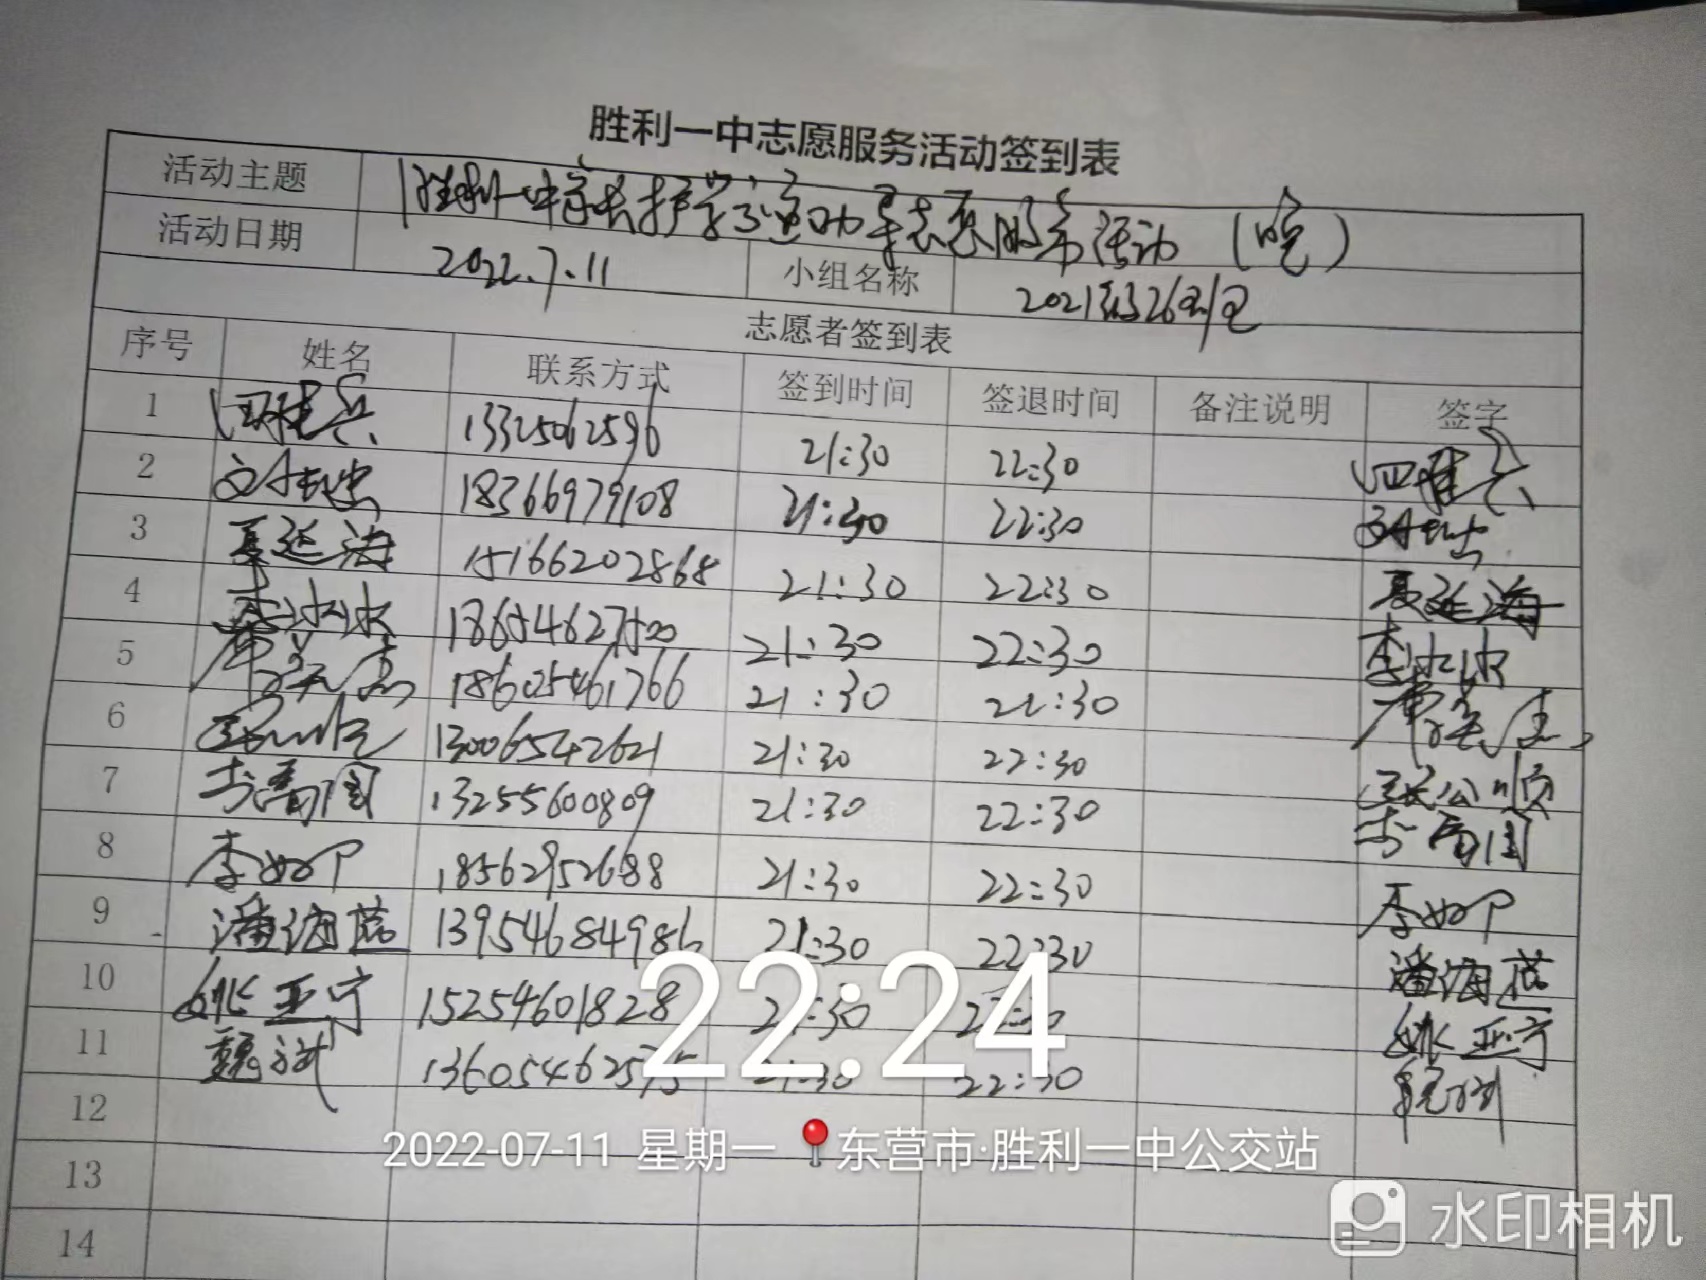 胜利一中志愿服务活动签到表
活动主题 胜利一中家长护学志愿服务活动（晚）
活动日期 2022.7.11 小组名称 2021级26班
志愿者签到表
序号 姓名 联系方式 签到时间 签退时间 备注说明 签字
1 13325062596 21:30 22:30
2 18366979108 21:30 22:30
3 夏延海 15166202868 21:30 22:30 夏延海
4 李冰冰 18654627500 21:30 22:30 李冰冰
5 186025461766 21:30 22:30
6 13006542621 21:30 22:30
7 13255600809 21:30 22:30
8 李 18562952688 21:30 22:30 李
9 潘海燕 13954684986 21:30 22:30 潘海燕
10 姚亚宁 15254601828 21:30 22:30 姚亚宁
11 魏斌 13605462575 21:30 22:30 魏斌
12
13
14
22:24
2022-07-11 星期一 东营市·胜利一中公交站
水印相机